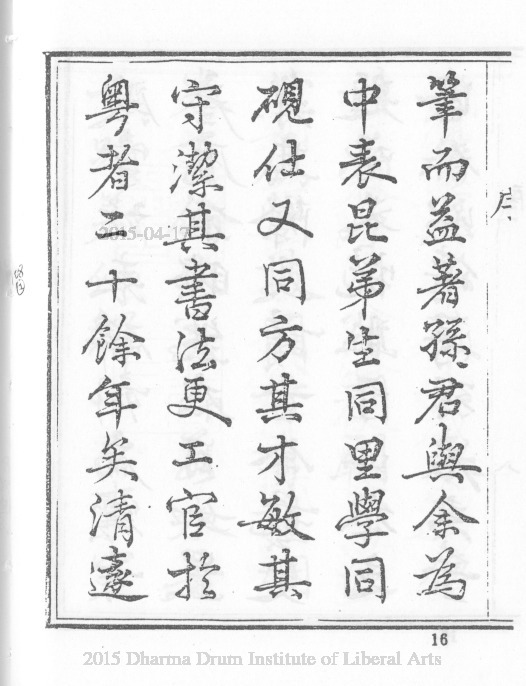 序
筆而益著孫君與余為
中表昆弟生同里學同
硯仕又同方其才敏其
守潔其書法更工官於
粵者二十餘年矣清邃
2015-04-17
16
2015 Dharma Drum Institute of Liberal Arts